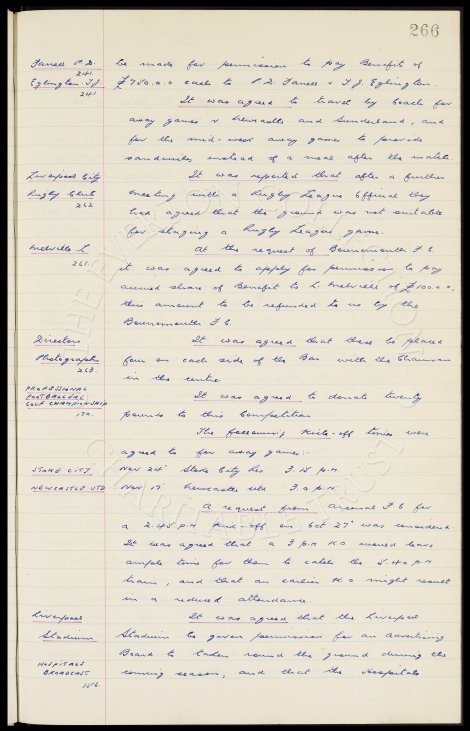 266
Farrell P.D. be made for permission to pay Benefit of
241.
Eglington T.J. £750.0.0 each to P.D. Farrell & T.J. Eglington.
241 It was agreed to travel by Coach for
away games v Newcastle and Sunderland, and
for the mid-week away games to provide
sandwiches instead of a meal after the match.
Liverpool City It was reported that after a further
Rugby Club meeting with a Rugby League Official they
262 had agreed that the ground was not suitable
for staging a Rugby League game.
Melville L. At the request of Bournemouth F.C.
261. it was agreed to apply for permission to pay
accrued share of Benefit to L. Melville of £100.0.0,
this amount to be refunded to us by the
Bournemouth F.C.
Directors It was agreed that these be placed
Photographs four on each side of the Bar with the Chairman
263. in the centre.
PROFESSIONAL
FOOTBALLERS It was agreed to donate twenty
GOLF CHAMPIONSHIP
170. pounds to this Competition
The following Kick-off times were
agreed to for away games:-
STOKE CITY Nov 24 Stoke City 3.15 p.m.
NEWCASTLE UTD Nov 17 Newcastle Utd 3.0 p.m.
A request from Arsenal F.C for
a 2.45 p.m. Kick-off on Oct 27 was considered
It was agreed that a 3 p.m K.O would leave
ample time for them to catch the 5.40 p.m
train, and that an earlier K.O might result
in a reduced attendance.
Liverpool It was agreed that the Liverpool
Stadium Stadium be given permission for an Advertising
Board to be taken round the ground during the
HOSPITALS
BROADCAST coming season, and that the Hospitals